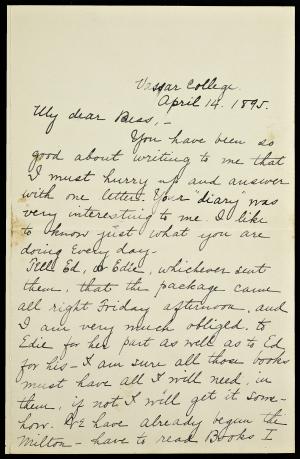 Vassar College.
April 14. 1895.
My dear Bess,-
You have been so
good about writing to me that
I must hurry up and answer
with one letter. Your "diary was
very interesting to me. I like
to know just what you are
doing every day-
Tell Ed, or Edie, whichever sent
them, that the package came
all right Friday afternoon, and
I am very much obliged to
Edie for her part as well as to Ed
for his - I am sure all those books
must have all I will need, in
them, if not I will get it some-
how. We have already begun the
Milton - have to read Books I